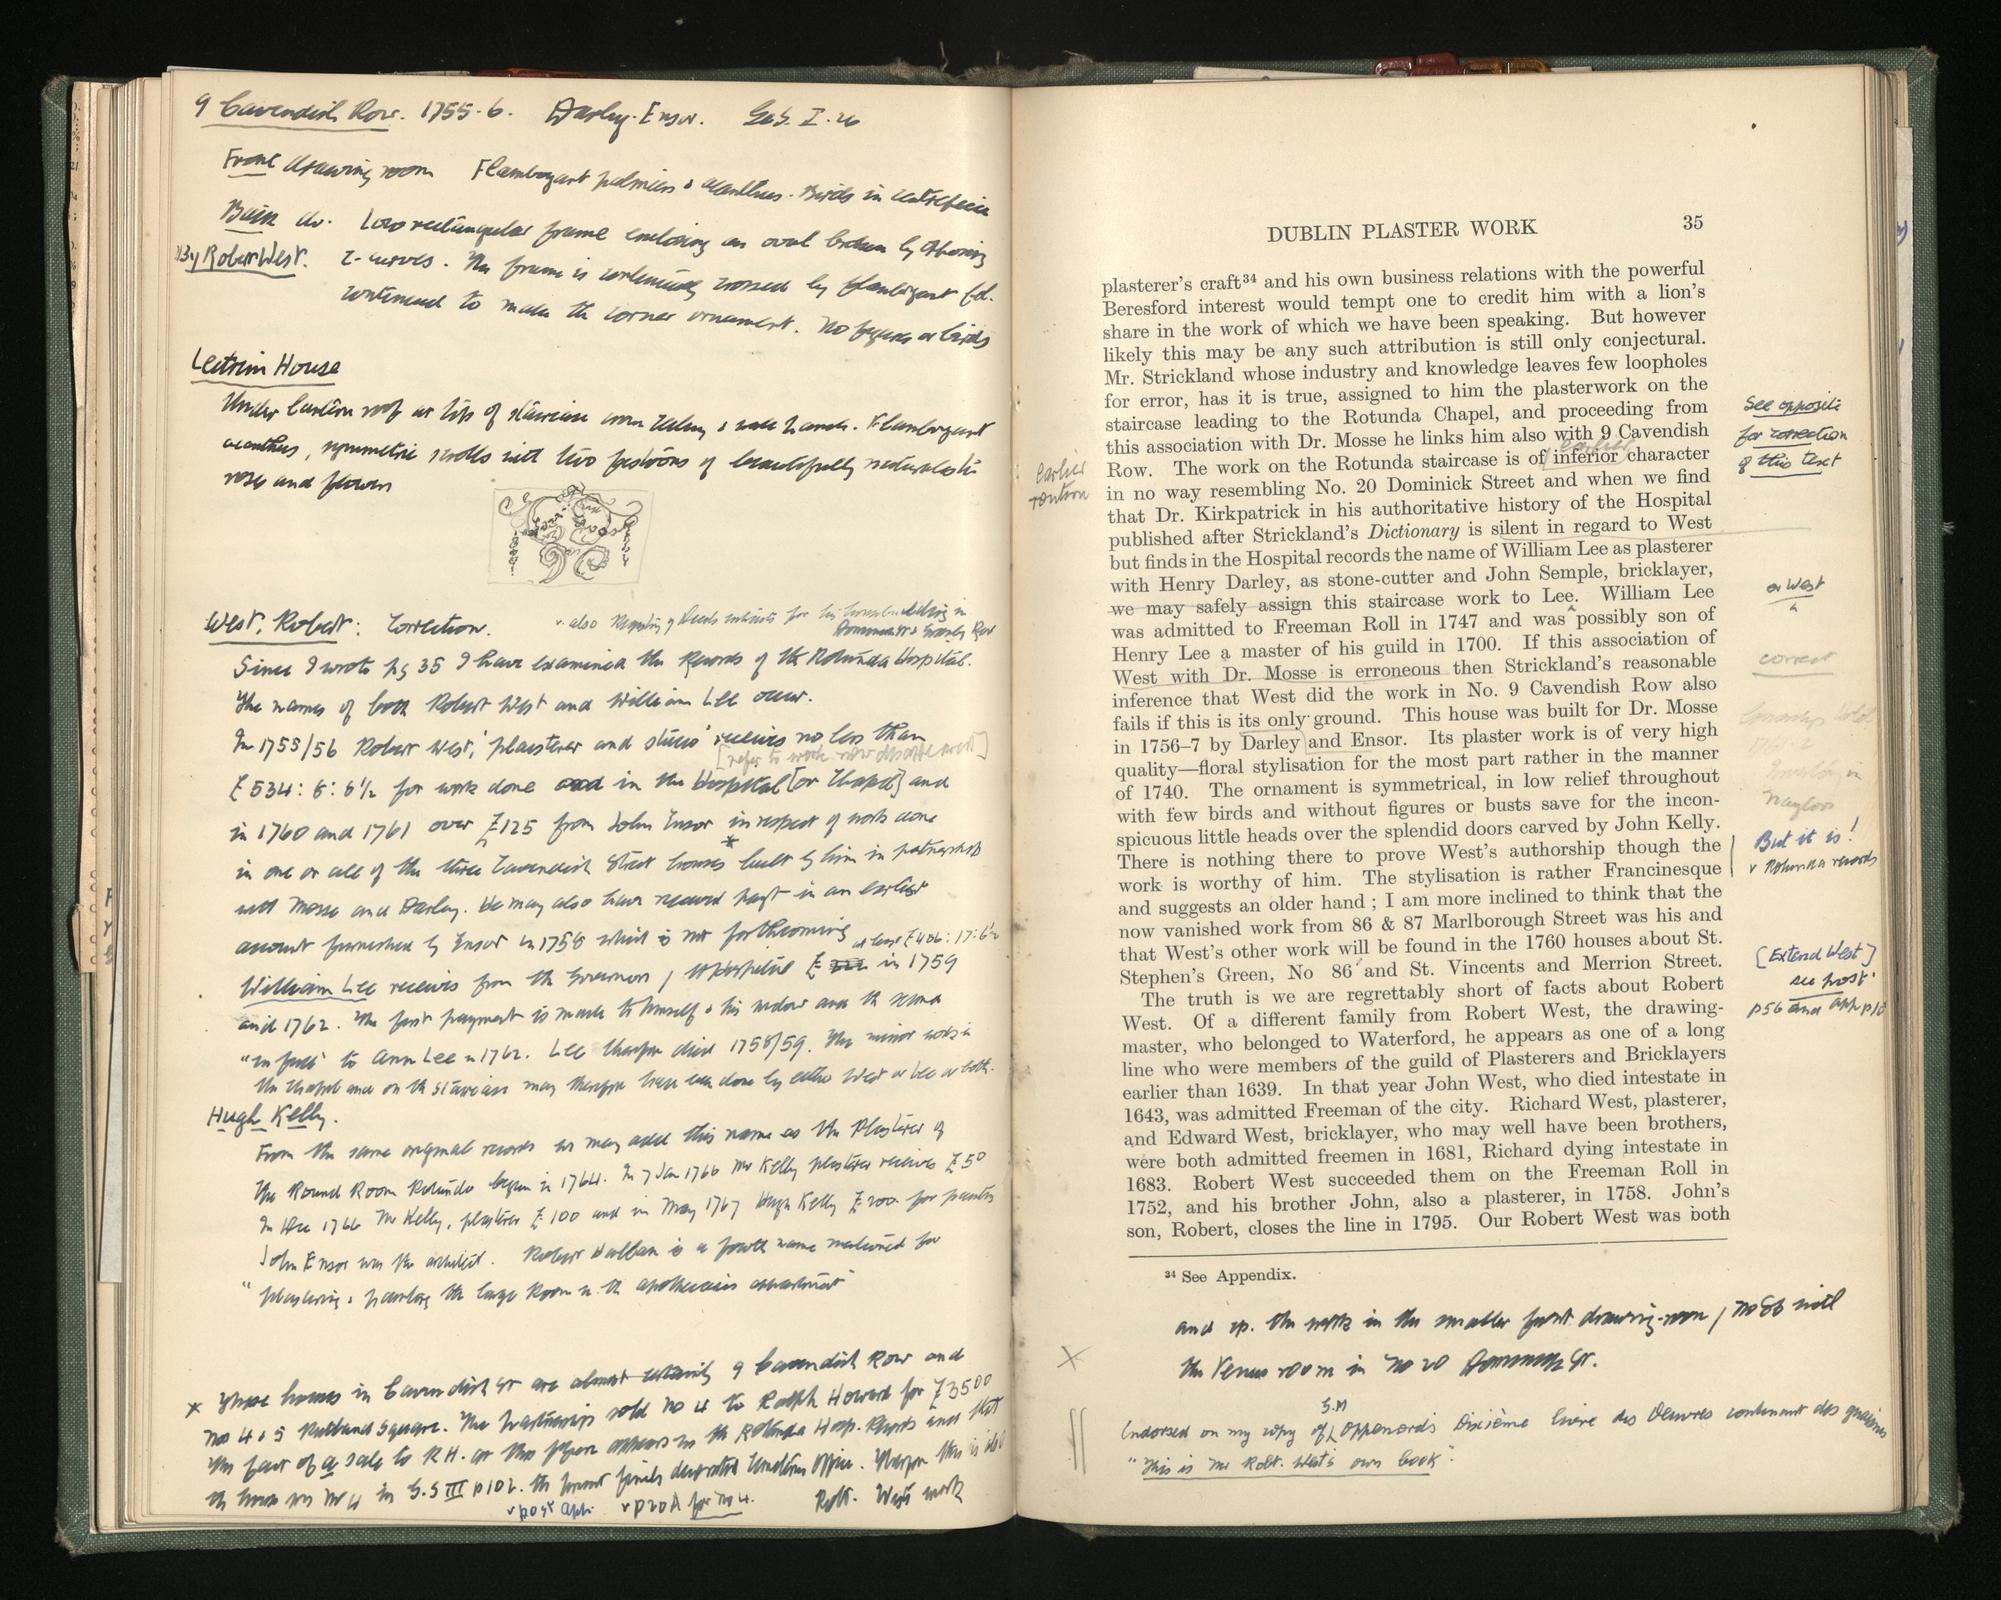 9 Cavendish Row. 1755-6. Darley-Ensor. G.S. I. 26
Front drawing room Flamboyant palmiers & acanthus. Birds in centrepiece
Back do. Low rectangular frame enclosing an oval broken by
By Robert West. C-curves. The frame is continually crossed by flamboyant fol.
continued to make the corner ornament. No figures or birds
Leitrim House
Under Carlton roof at top of staircase ceiling & walls. Flamboyant
acanthus, symmetric scrolls with two festoons of beautifully naturalistic
roses and flowers
West, Robert: Correction.
v. also Registry of Deeds for his housebuilding in
Dominick St & Granby Row
Since I wrote pg 35 I have examined the Records of the Rotunda Hospital.
The names of both Robert West and William Lee occur.
In 1755/56 Robert West, 'plaisterer and stuco' receives no less than
[refer to work now disappeared]
£534: 6: 6½ for work done in the Hospital [or Chapel] and
in 1760 and 1761 over £125 from John Ensor in respect of work done
in one or all of the three Cavendish Street houses * built by him in partnership
with Mosse and Darley. He may also have received payt in an earlier
account furnished by Ensor in 1758 which is not forthcoming
at least £406: 17: 6½
William Lee receives from the Governors of Hospital £ in 1759
and 1762. The first payment is made to himself & his widow and the second
"in full" to Ann Lee in 1762. Lee therefore died 1758/59. The minor work in
the Chapel and on the staircase may therefore have been done by either West or Lee or both.
Hugh Kelly.
From the same original records we may add this name as the Plasterer of
the Round Room Rotunda begun in 1764. In 7 Jan 1766 Mr Kelly plasterer receives £50
In Dec 1766 Mr Kelly, plasterer £100 and in May 1767 Hugh Kelly £200 for painting
John Ensor was the architect. Robert Halban is a fourth name mentioned for
"plastering & painting the large Room in the apothecaries apartment"
* These houses in Cavendish St are almost certainly 9 Cavendish Row and
nos 4 & 5 Rutland Square. The partnership sold no 4 to Ralph Howard for £3500
The fact of a sale to R.H. at this figure appears in the Rotunda Hosp. Records and that
the house was No 4 in G.S III p102. the present finely decorated Office. Therefore this is also
v post app. v p20A for no 4. Robt. West's work
DUBLIN PLASTER WORK 35
plasterer's craft³⁴ and his own business relations with the powerful
Beresford interest would tempt one to credit him with a lion's
share in the work of which we have been speaking. But however
likely this may be any such attribution is still only conjectural.
Mr. Strickland whose industry and knowledge leaves few loopholes
for error, has it is true, assigned to him the plasterwork on the
staircase leading to the Rotunda Chapel, and proceeding from
this association with Dr. Mosse he links him also with 9 Cavendish
Row. The work on the Rotunda staircase is of inferior character
in no way resembling No. 20 Dominick Street and when we find
that Dr. Kirkpatrick in his authoritative history of the Hospital
published after Strickland's Dictionary is silent in regard to West
but finds in the Hospital records the name of William Lee as plasterer
with Henry Darley, as stone-cutter and John Semple, bricklayer,
we may safely assign this staircase work to Lee. William Lee
was admitted to Freeman Roll in 1747 and was possibly son of
Henry Lee a master of his guild in 1700. If this association of
West with Dr. Mosse is erroneous then Strickland's reasonable
inference that West did the work in No. 9 Cavendish Row also
fails if this is its only ground. This house was built for Dr. Mosse
in 1756–7 by Darley and Ensor. Its plaster work is of very high
quality—floral stylisation for the most part rather in the manner
of 1740. The ornament is symmetrical, in low relief throughout
with few birds and without figures or busts save for the incon-
spicuous little heads over the splendid doors carved by John Kelly.
There is nothing there to prove West's authorship though the
work is worthy of him. The stylisation is rather Francinesque
and suggests an older hand ; I am more inclined to think that the
now vanished work from 86 & 87 Marlborough Street was his and
that West's other work will be found in the 1760 houses about St.
Stephen's Green, No 86 and St. Vincents and Merrion Street.
The truth is we are regrettably short of facts about Robert
West. Of a different family from Robert West, the drawing-
master, who belonged to Waterford, he appears as one of a long
line who were members of the guild of Plasterers and Bricklayers
earlier than 1639. In that year John West, who died intestate in
1643, was admitted Freeman of the city. Richard West, plasterer,
and Edward West, bricklayer, who may well have been brothers,
were both admitted freemen in 1681, Richard dying intestate in
1683. Robert West succeeded them on the Freeman Roll in
1752, and his brother John, also a plasterer, in 1758. John's
son, Robert, closes the line in 1795. Our Robert West was both
³⁴ See Appendix.
earlier
See opposite
for correction
of this text
or West
correct
But it is!
v Rotunda records
[Extend West]
see post
p56 and app p10
and cp. the work in the smaller front drawing-room / no 86 with
the Venus room in no 20 Dominick St.
G.M
Endorsed on my copy of Oppenord's Dixième livre des Oeuvres contenant des
"This is Mr Robt. West's own book".